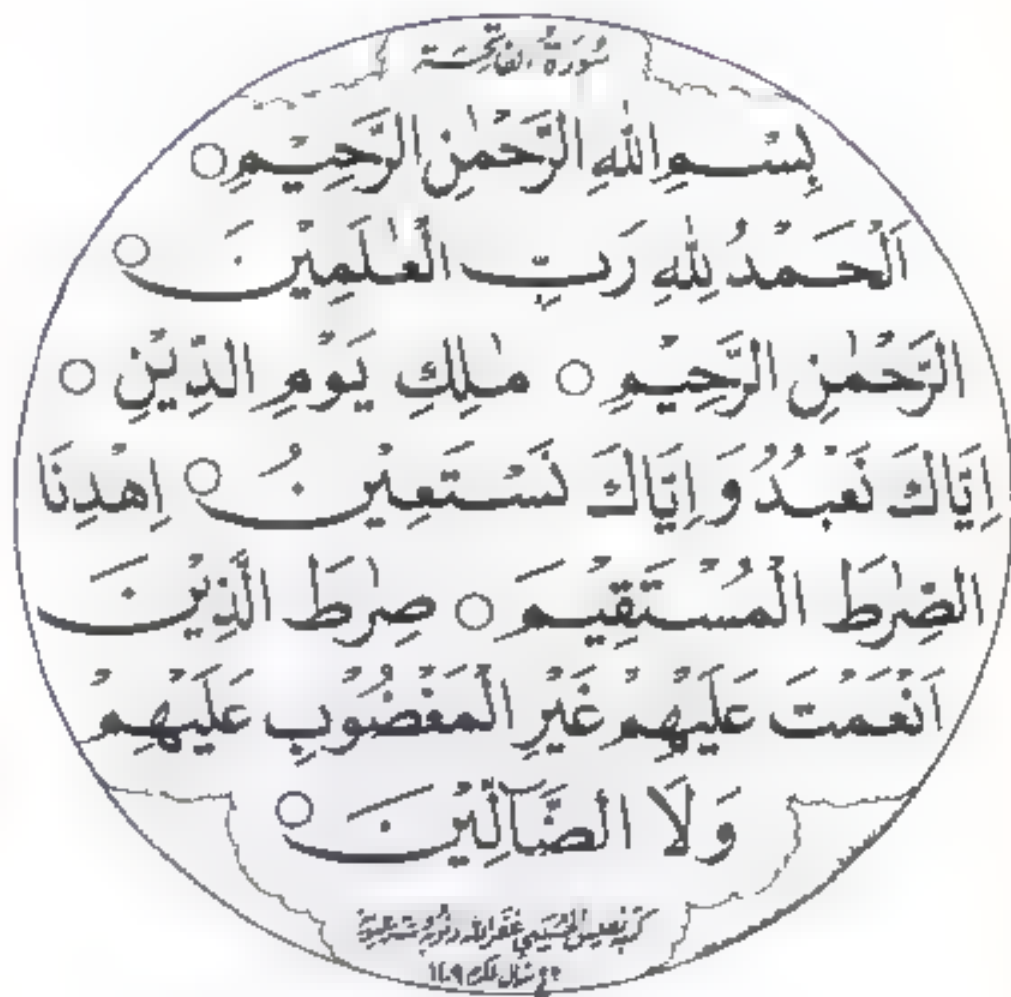 سُورَةُ الفَاتِحَة
بِسْمِ اللهِ الرَّحْمٰنِ الرَّحِيْمِ ○
اَلْحَمْدُ لِلهِ رَبِّ الْعٰلَمِيْنَ ○
الرَّحْمٰنِ الرَّحِيْمِ ○ مٰلِكِ يَوْمِ الدِّيْنِ ○
اِيَّاكَ نَعْبُدُ وَ اِيَّاكَ نَسْتَعِيْنُ ○ اِهْدِنَا
الصِّرٰطَ الْمُسْتَقِيْمَ ○ صِرٰطَ الَّذِيْنَ
اَنْعَمْتَ عَلَيْهِمْ غَيْرِ الْمَغْضُوْبِ عَلَيْهِمْ
وَلَا الضَّآلِّيْنَ ○
١٤٠٩